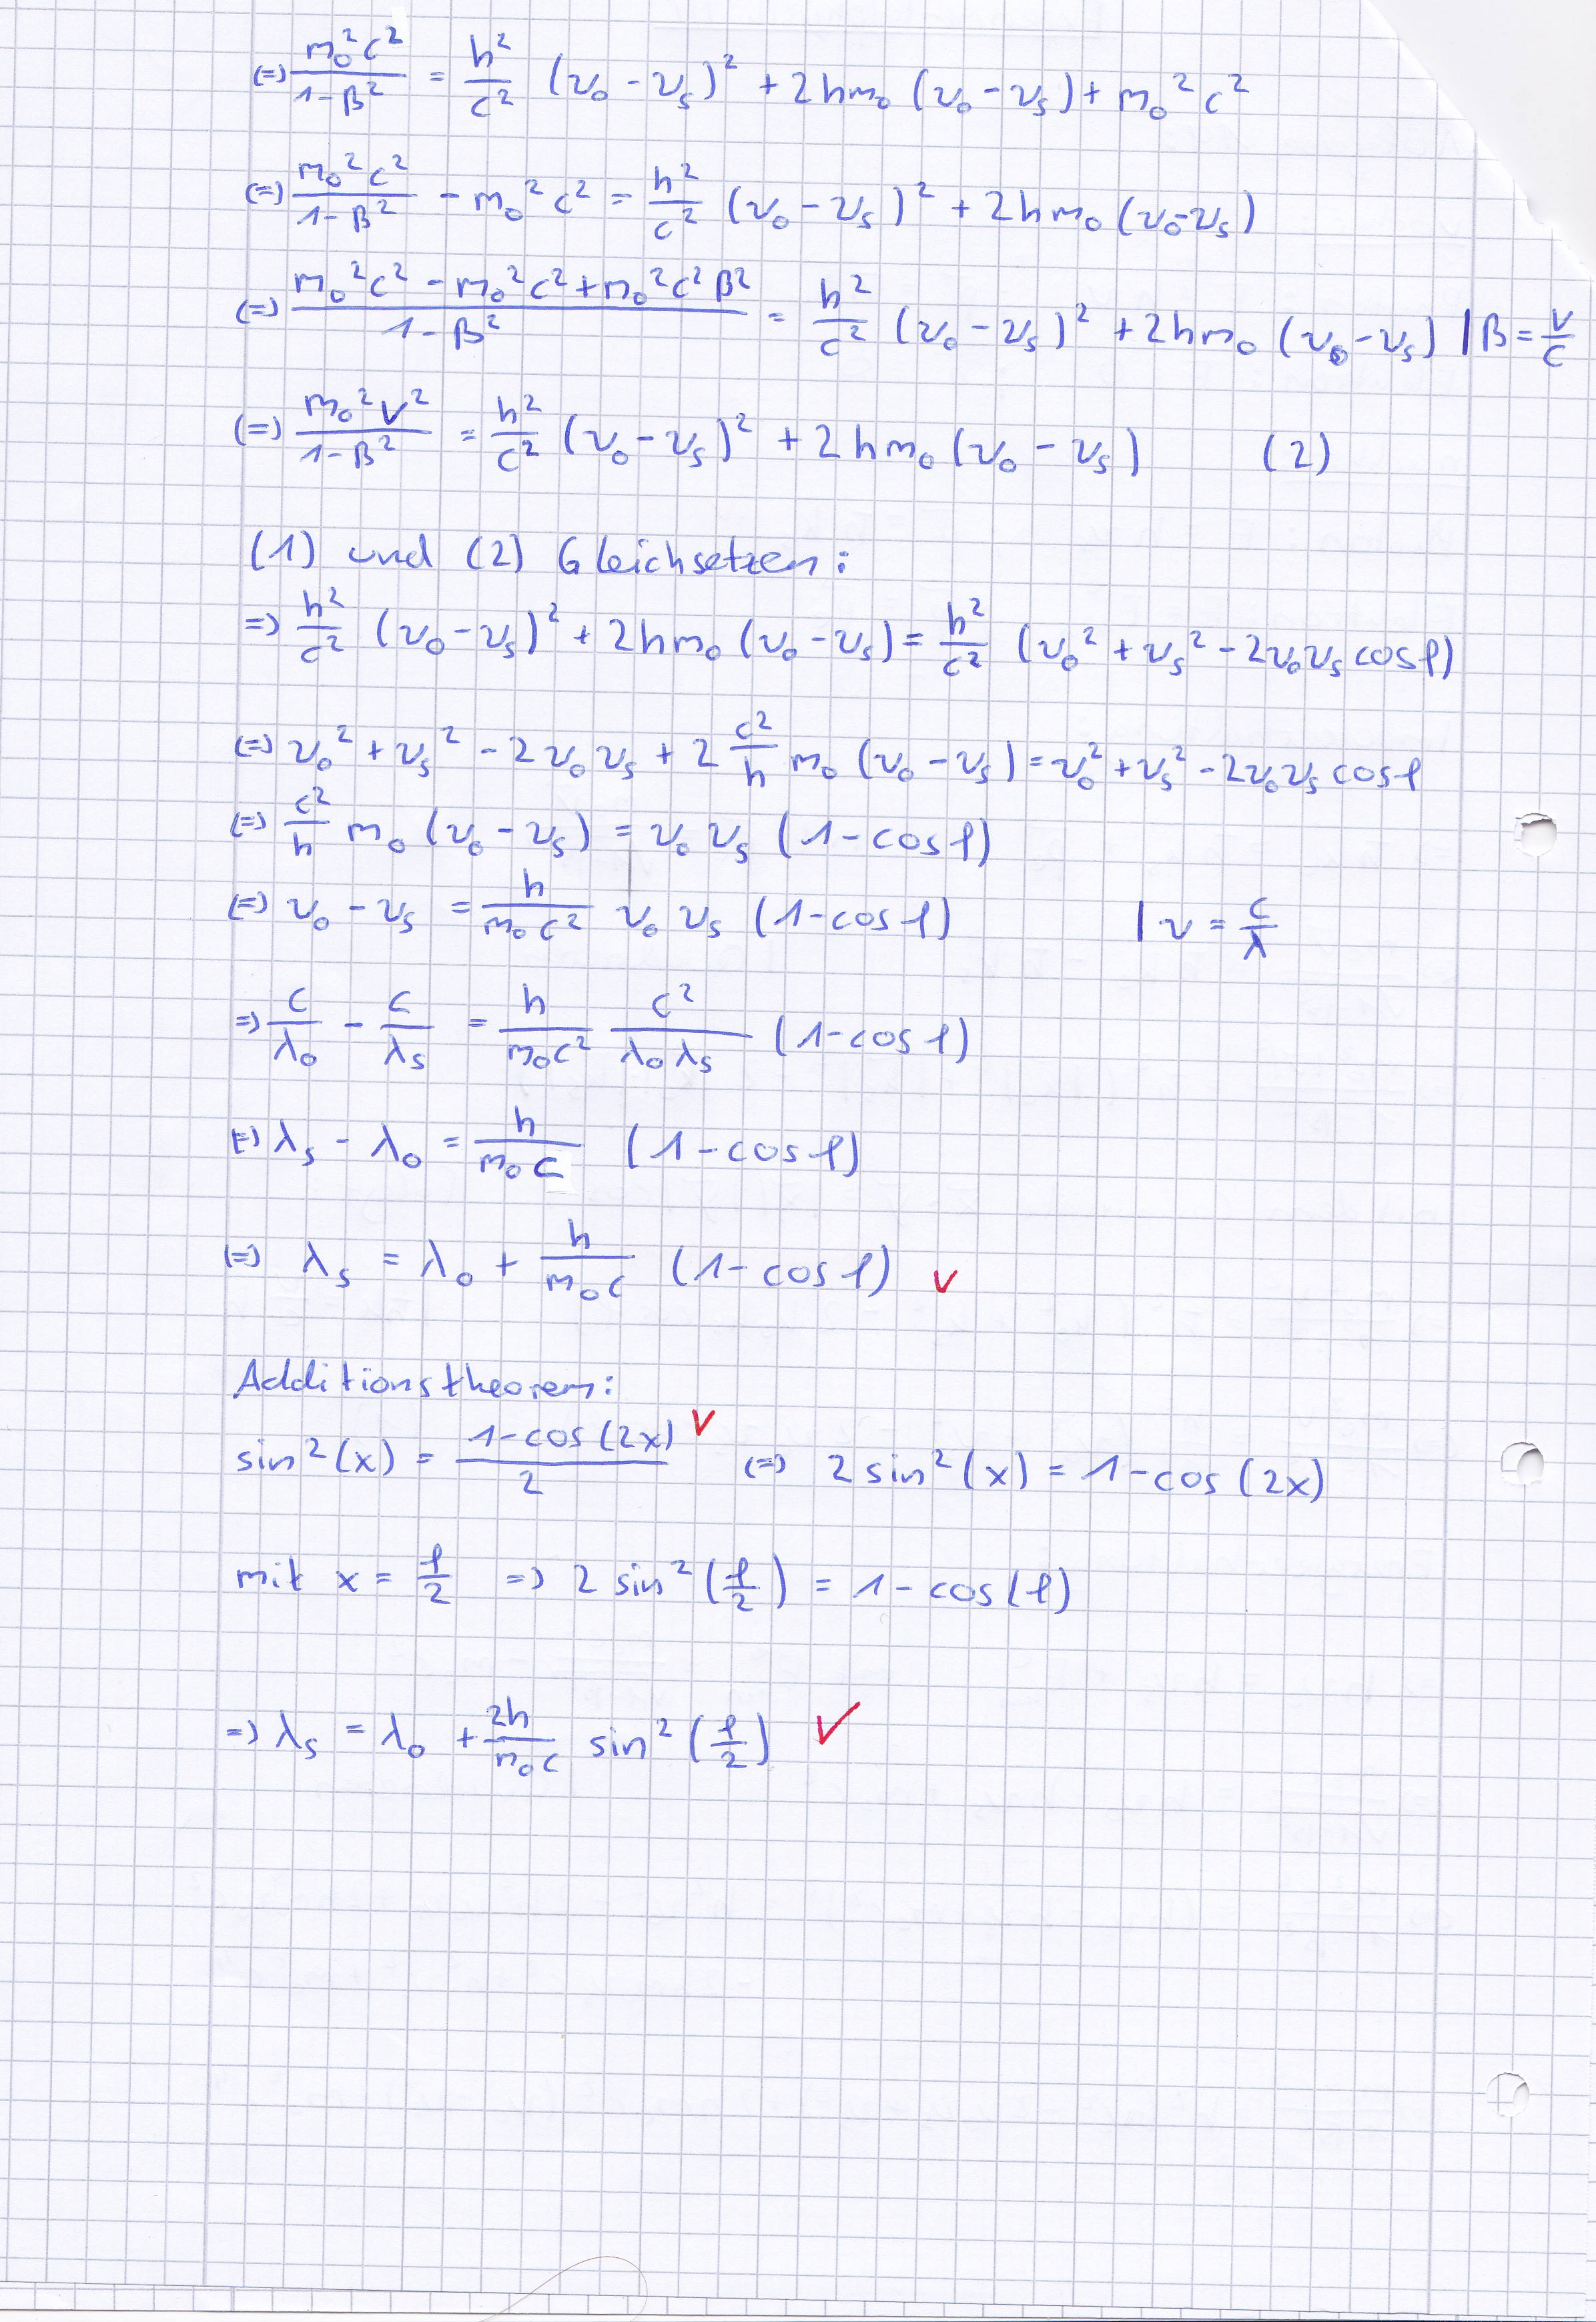 (=) m₀²c² / (1-β²) = h²/c² (ν₀ - νₛ)² + 2hm₀ (ν₀ - νₛ) + m₀²c²
(=) m₀²c² / (1-β²) - m₀²c² = h²/c² (ν₀ - νₛ)² + 2hm₀ (ν₀-νₛ)
(=) (m₀²c² - m₀²c² + m₀²c²β²) / (1-β²) = h²/c² (ν₀ - νₛ)² + 2hm₀ (ν₀ - νₛ) | β = v/c
(=) m₀²v² / (1-β²) = h²/c² (ν₀ - νₛ)² + 2hm₀ (ν₀ - νₛ) (2)
(1) und (2) Gleichsetzen:
=) h²/c² (ν₀ - νₛ)² + 2hm₀ (ν₀ - νₛ) = h²/c² (ν₀² + νₛ² - 2ν₀νₛ cos φ)
(=) ν₀² + νₛ² - 2ν₀νₛ + 2 c²/h m₀ (ν₀ - νₛ) = ν₀² + νₛ² - 2ν₀νₛ cos φ
(=) c²/h m₀ (ν₀ - νₛ) = ν₀ νₛ (1 - cos φ)
(=) ν₀ - νₛ = h/(m₀c²) ν₀ νₛ (1 - cos φ) | ν = c/λ
=) c/λ₀ - c/λₛ = h/(m₀c²) c²/(λ₀λₛ) (1 - cos φ)
(=) λₛ - λ₀ = h/(m₀c) (1 - cos φ)
(=) λₛ = λ₀ + h/(m₀c) (1 - cos φ) ✓
Additionstheorem:
sin²(x) = (1-cos(2x))/2 ✓ (=) 2 sin²(x) = 1-cos(2x)
mit x = φ/2 =) 2 sin²(φ/2) = 1 - cos(φ)
=) λₛ = λ₀ + 2h/(m₀c) sin²(φ/2) ✓